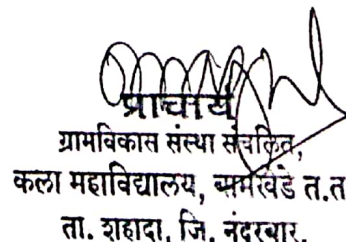 प्राचार्य
ग्रामविकास संस्था संचलित,
कला महाविद्यालय, बामखेडे त.त
ता. शहादा, जि. नंदुरबार.